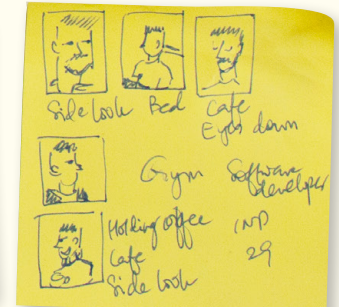 Side look Bed Cafe
Eyes down
Gym Software
developer
Holding coffee IND
Cafe 29
Side look